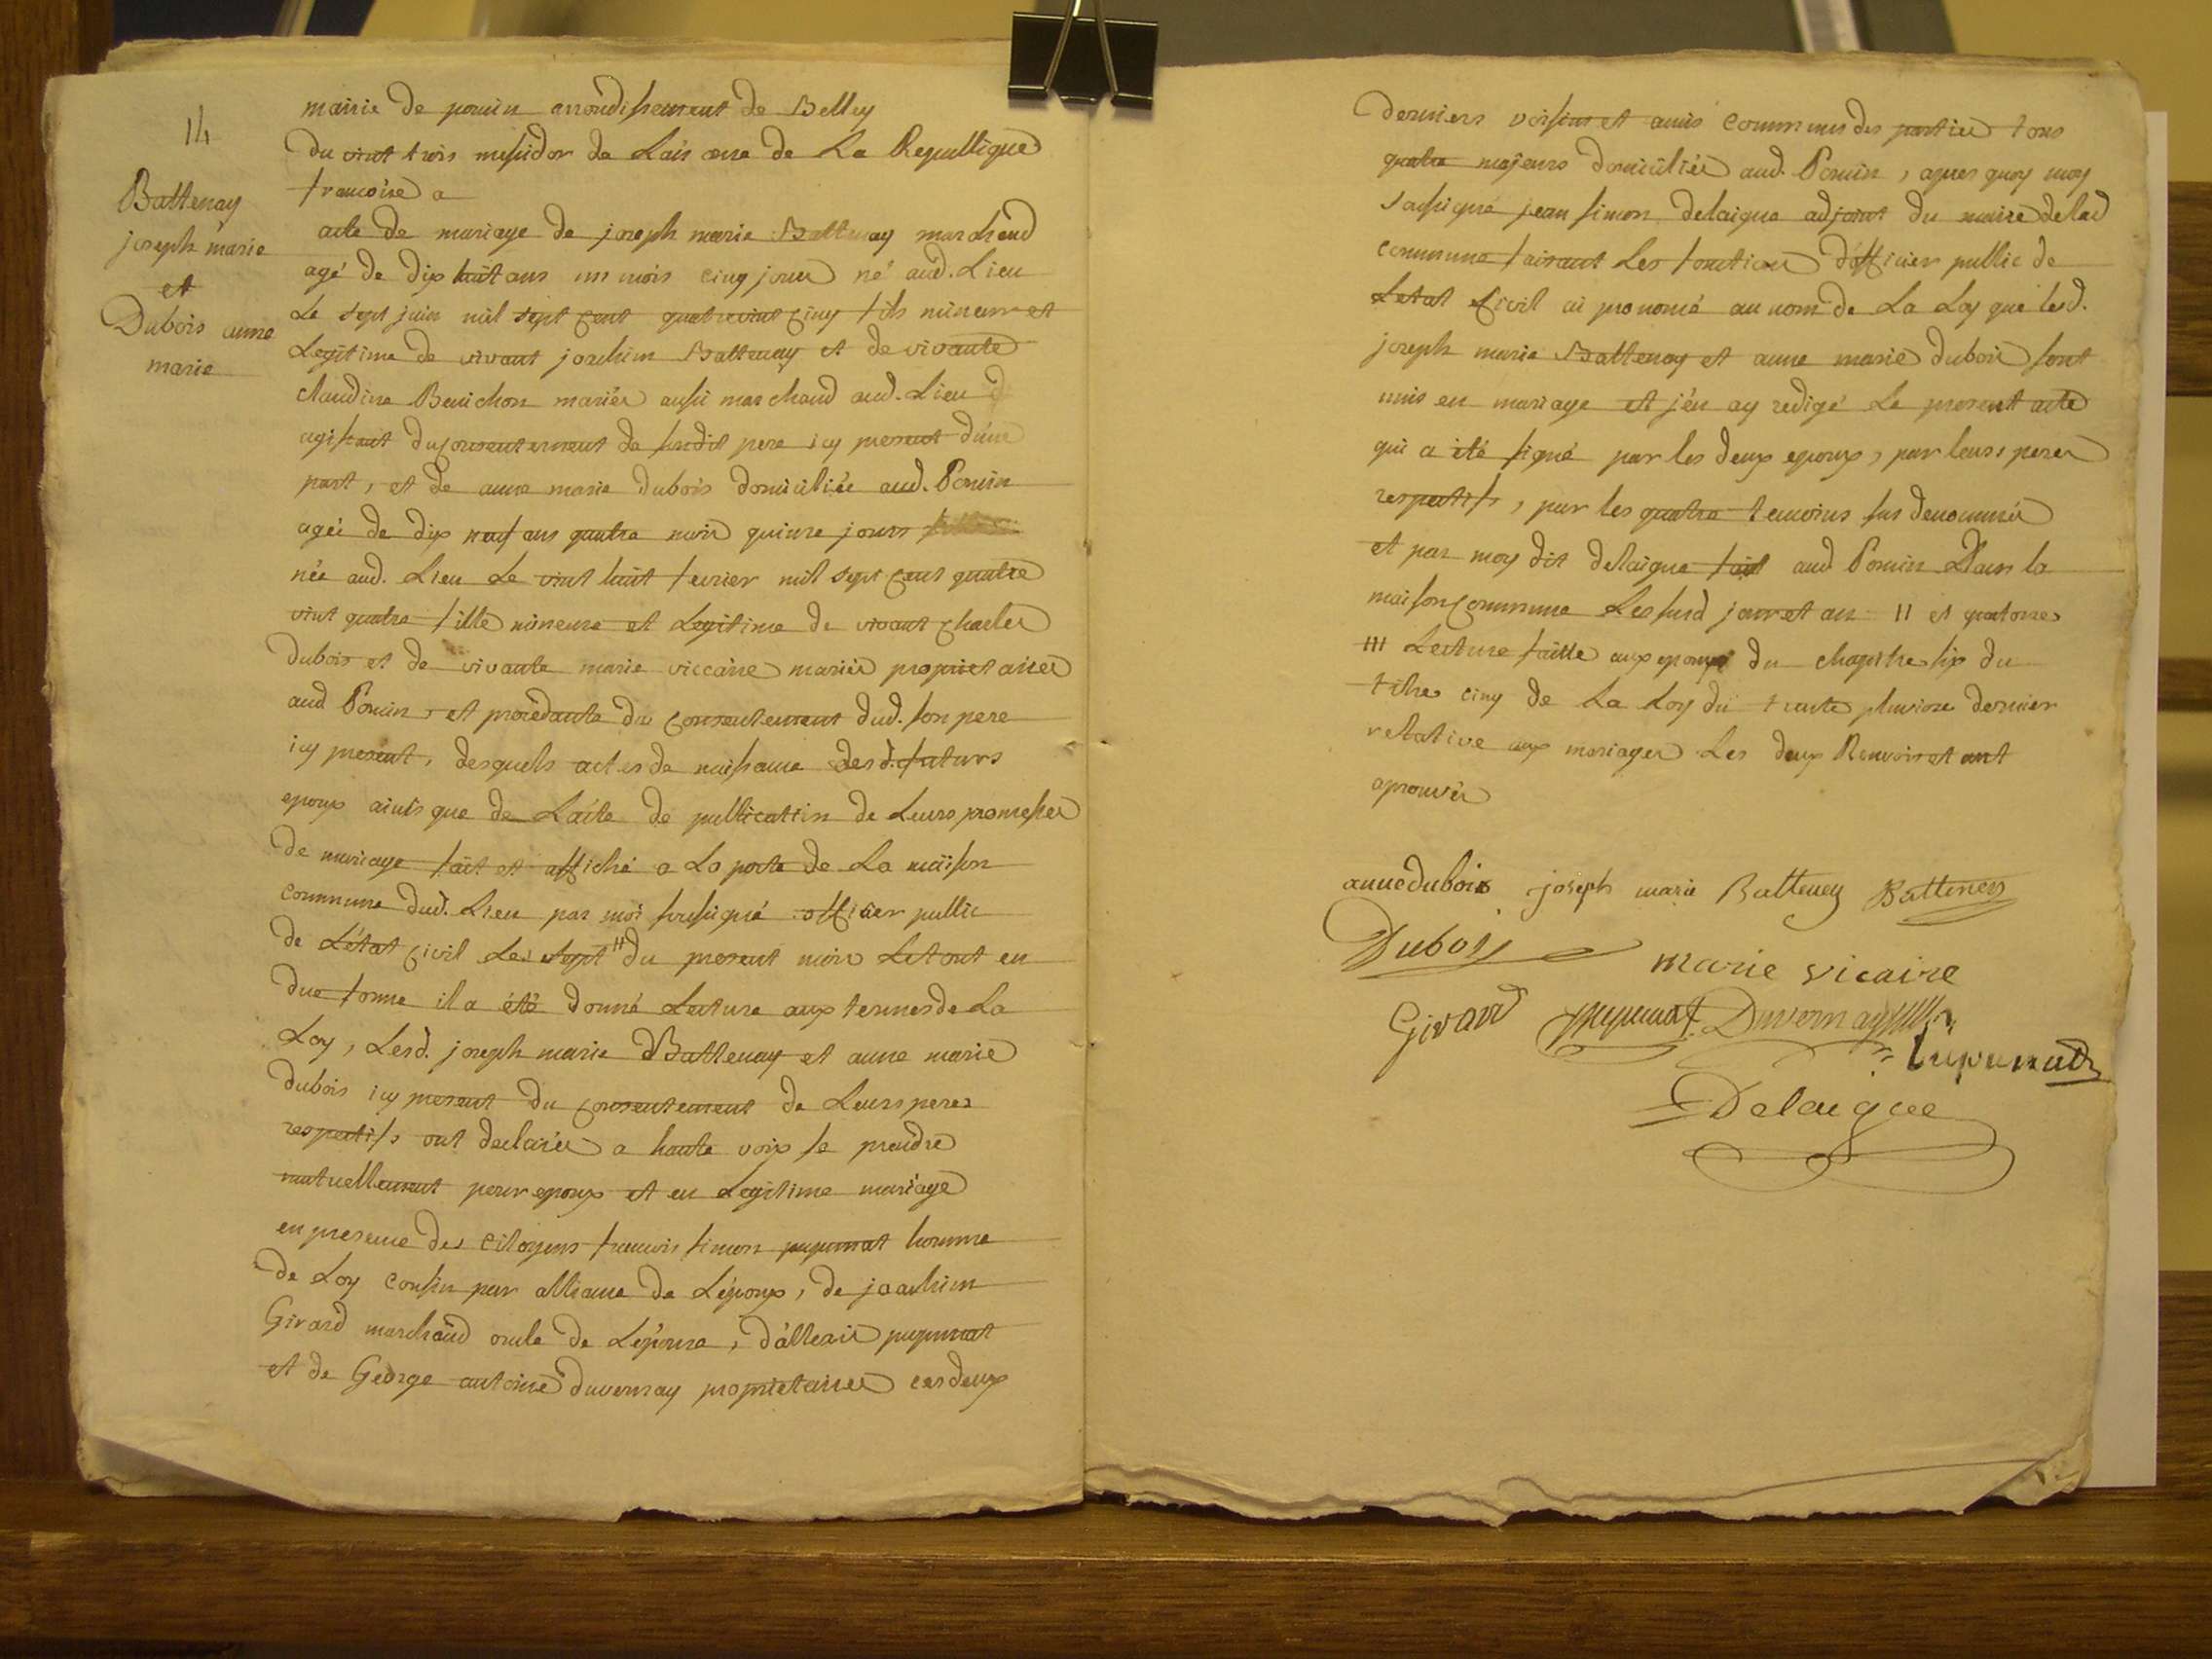 14
Battenay
joseph marie
et
Dubois anne
marie
mairie de poncin arrondissement de Belley
du vint trois messidor de Lais onse de La Republique
francoise a
acte de mariage de joseph marie Battenay marchand
agé de dix huit ans un mois cinq jours né aud. Lieu
Le sept juin mil sept cent quatrevint cinq fils mineur et
Legitime de vivant joachim Battenay et de vivante
claudine Bouichon mariés aussi marchand aud. Lieu
agissant du consentement de sondit pere icy present d'une
part, et de anne marie dubois domiciliée aud. Poncin
agée de dix neuf ans quatre mois quinse jours
née aud. Lieu Le vint huit fevrier mil sept cent quatre
vint quatre fille mineure et Legitime de vivant charles
Dubois et de vivante marie viccaire mariés proprietaires
aud Poncin, et procedante du consentement dud. son pere
icy present, desquels actes de naissance desd. futurs
epoux ainis que de L'acte de publicattin de Leurs promesses
de mariage fait et affiché a La porte de La maison
commune dud. Lieu par moi soussigné officier public
de L'état civil Le sept II du present mois Le tout en
due forme il a été donné Lecture aux termes de La
Loy, Lesd. joseph marie Battenay et anne marie
dubois icy present du consentement de Leurs peres
respectifs ont declarés a haute voix se prendre
mutuellement pour epoux et en Legitime mariage
en presence des citoyens francois simon pupunat homme
de Loy cousin par alliance de L'époux, de joachim
Girard marchand oncle de L'épouse, d'allexis pupunat
et de George antoine duvernay proprietaires ces deux
derniers voisins et amis communs des parties tous
quatre majeurs domiciliés aud. Poncin, apres quoy moy
soussigné jean simon delaigue adjoint du maire de lad
commune faisant Les fonctions d'officier public de
Letat Civil ai prononcé au nom de La Loy que lesd.
joseph marie Battenay et anne marie dubois sont
unis en mariage et j'en ay redigé Le present acte
qui a été signé par les deux epoux, par leurs peres
respectifs, par les quatre temoins sus denommés
et par moy dit delaigue fait aud Poncin Dans la
maison commune Les susd jour et an II et quatorse
III Lecture faitte aux epoux du chapitre six du
titre cinq de La Loy du trente pluviose dernier
relative aux mariages Les deux Renvois et ont
aprouvés
anne dubois joseph marie Battenay Battenay
Dubois
marie vicaire
Girard pupunat Duvernay
pupunat
Delaigue